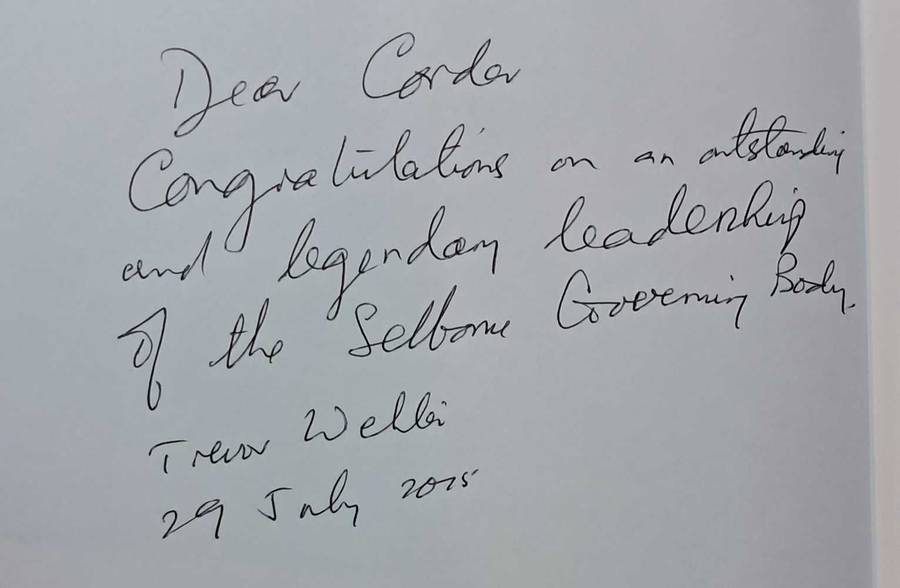 Dear Corder
Congratulations on an outstanding
and legendary leadership
of the Selborne Governing Body.
Trevor
29 July